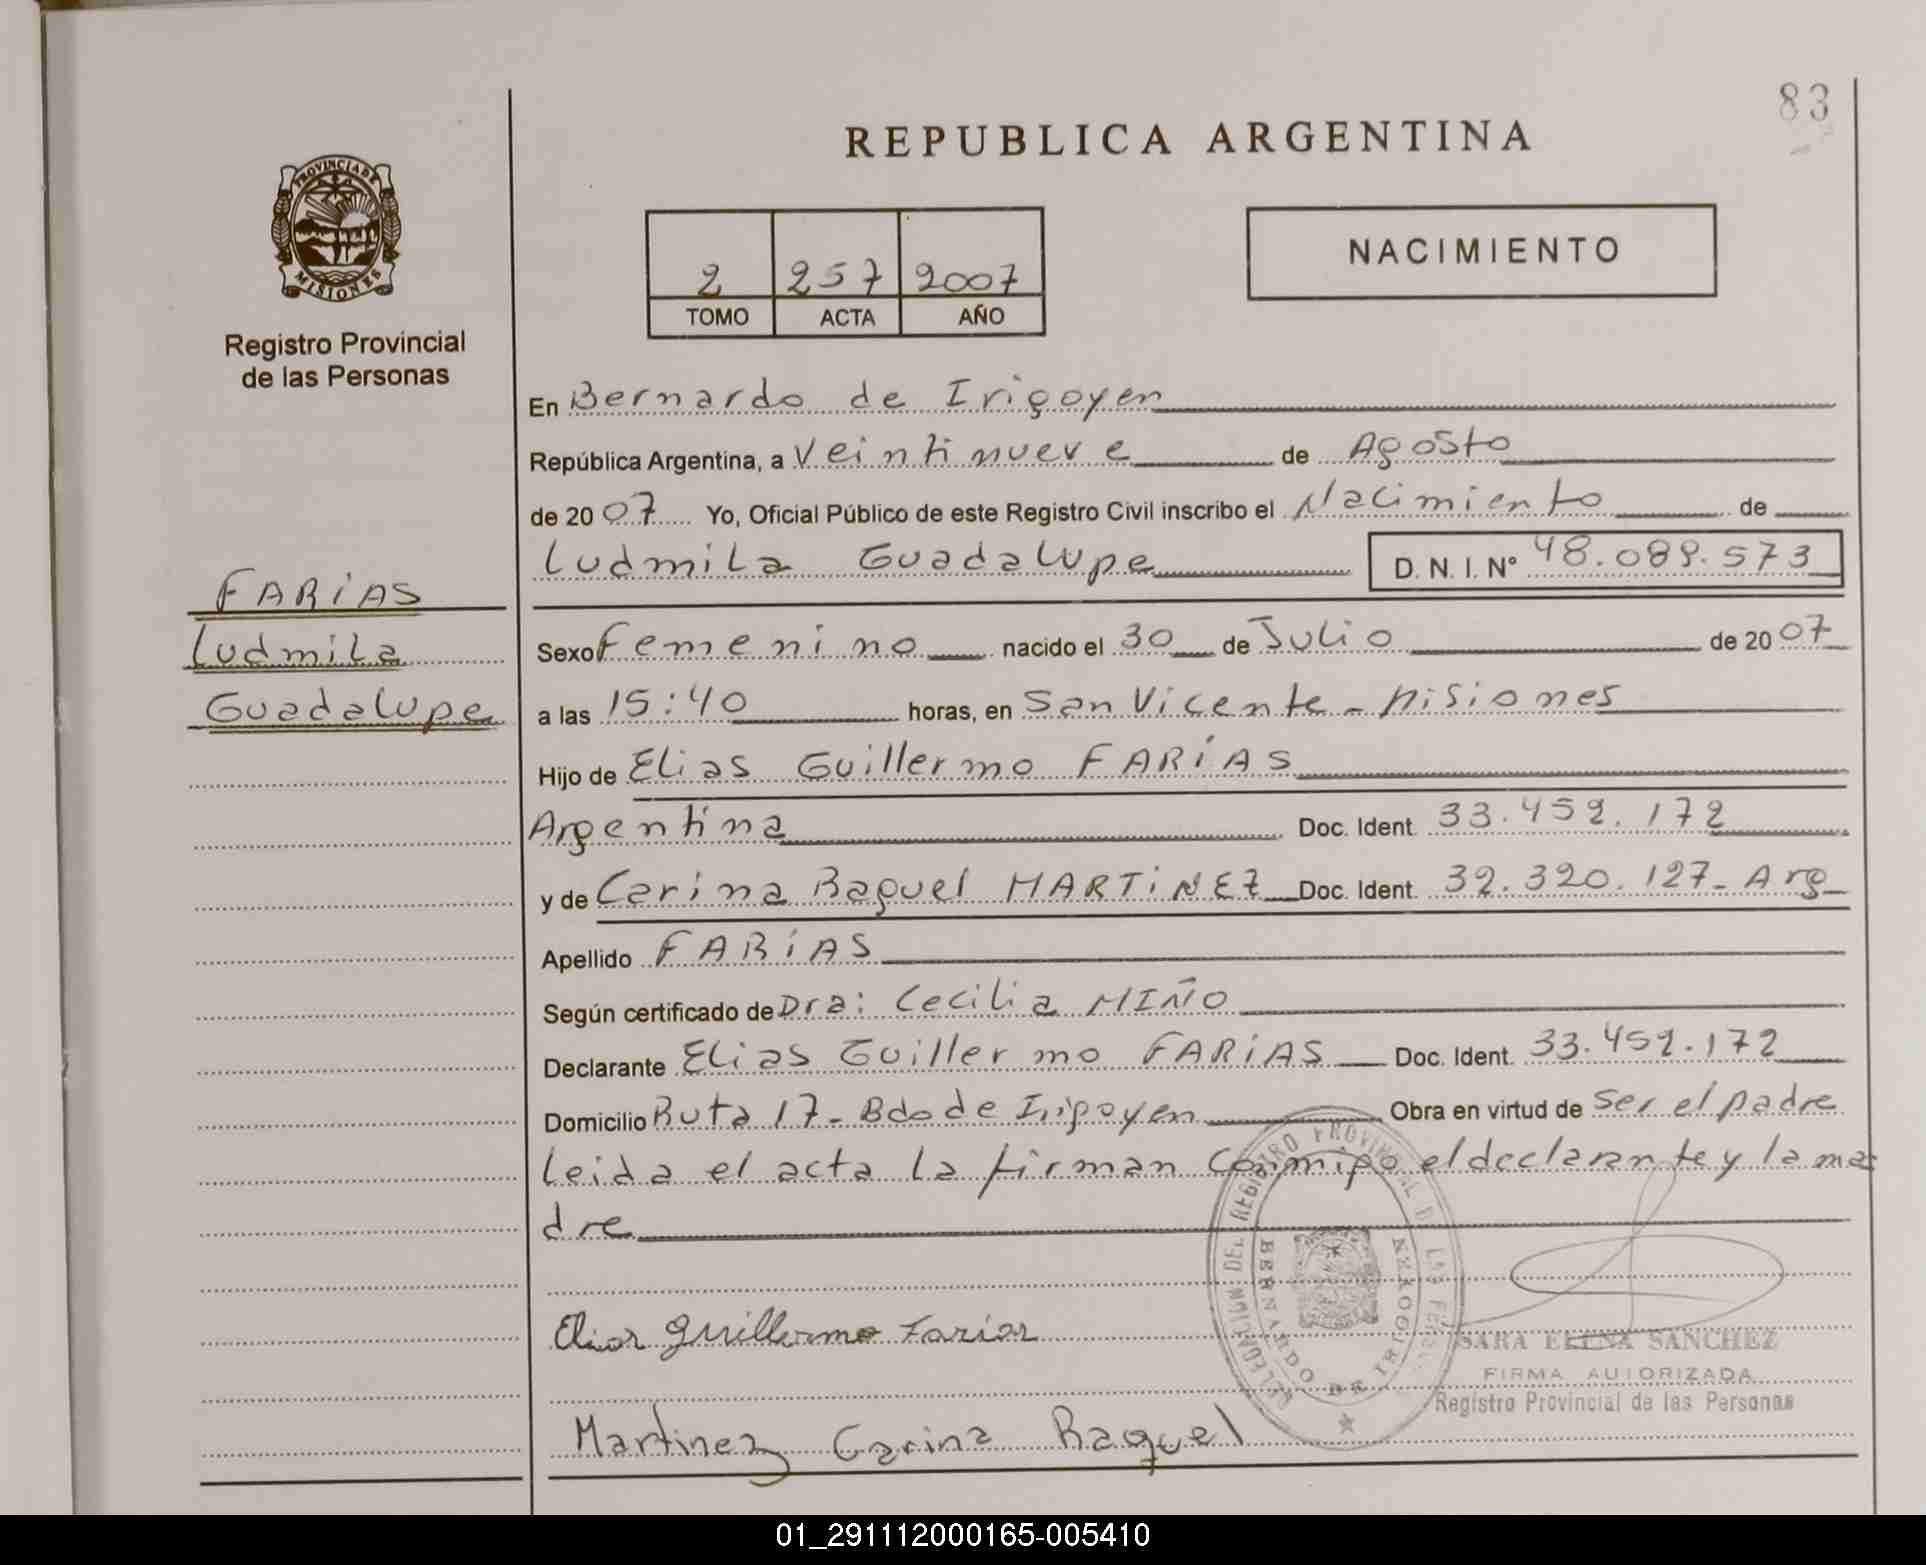 83
REPUBLICA ARGENTINA
PROVINCIA DE
MISIONES
Registro Provincial
de las Personas
2 257 2007
TOMO ACTA AÑO
NACIMIENTO
En Bernardo de Irigoyen
República Argentina, a Veintinueve de Agosto
de 2007 Yo, Oficial Público de este Registro Civil inscribo el Nacimiento de
Ludmila Guadalupe D. N. I. N° 48.089.573
FARiAS
Ludmila
Guadalupe
Sexo Femenino nacido el 30 de Julio de 2007
a las 15:40 horas, en San Vicente - Misiones
Hijo de Elias Guillermo FARÍAS
Argentina Doc. Ident. 33.459.172
y de Carina Raquel MARTiNEZ Doc. Ident. 32.320.127- Arg
Apellido FARiAS
Según certificado de Dra: Cecilia MIÑO
Declarante Elias Guillermo FARiAS Doc. Ident. 33.459.172
Domicilio Ruta 17- Bdo de Irigoyen Obra en virtud de ser el padre
Leida el acta la firman conmigo el declarante y la ma
dre
DELEGACION DEL REGISTRO PROVINCIAL DE LAS
BERNARDO DE IRIGOYEN
Elias Guillermo Farias
SARA ELENA SANCHEZ
FIRMA AUTORIZADA
Registro Provincial de las Personas
Martinez Carina Raquel
01_291112000165-005410